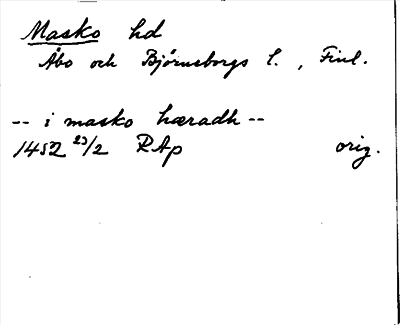 Masko hd
Åbo och Björneborgs l., Finl.
-- i masko hæradh --
1452 23/2 RAp orig.